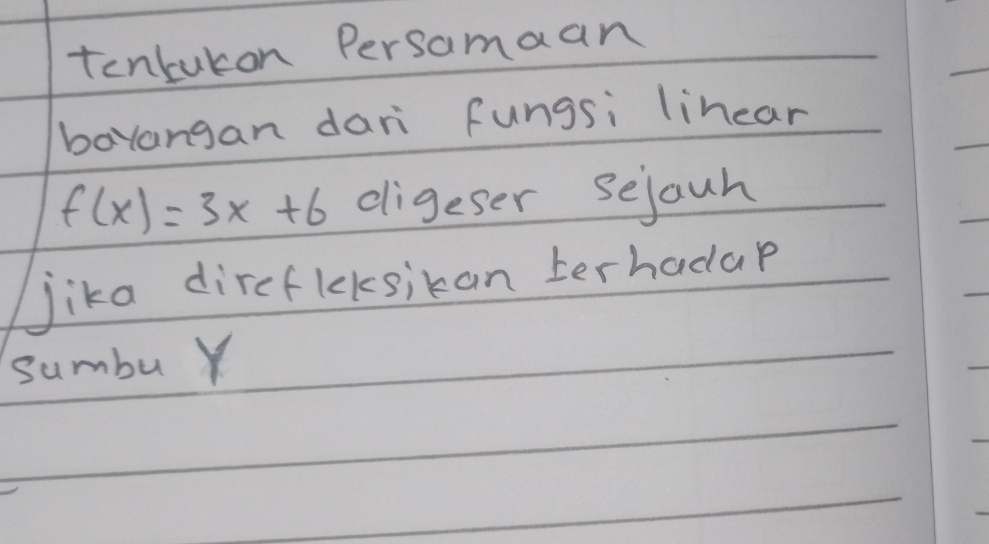 tentukan Persamaan
bayangan dari fungsi linear
f(x) = 3x + 6 digeser sejauh
jika direfleksikan terhadap
sumbu Y